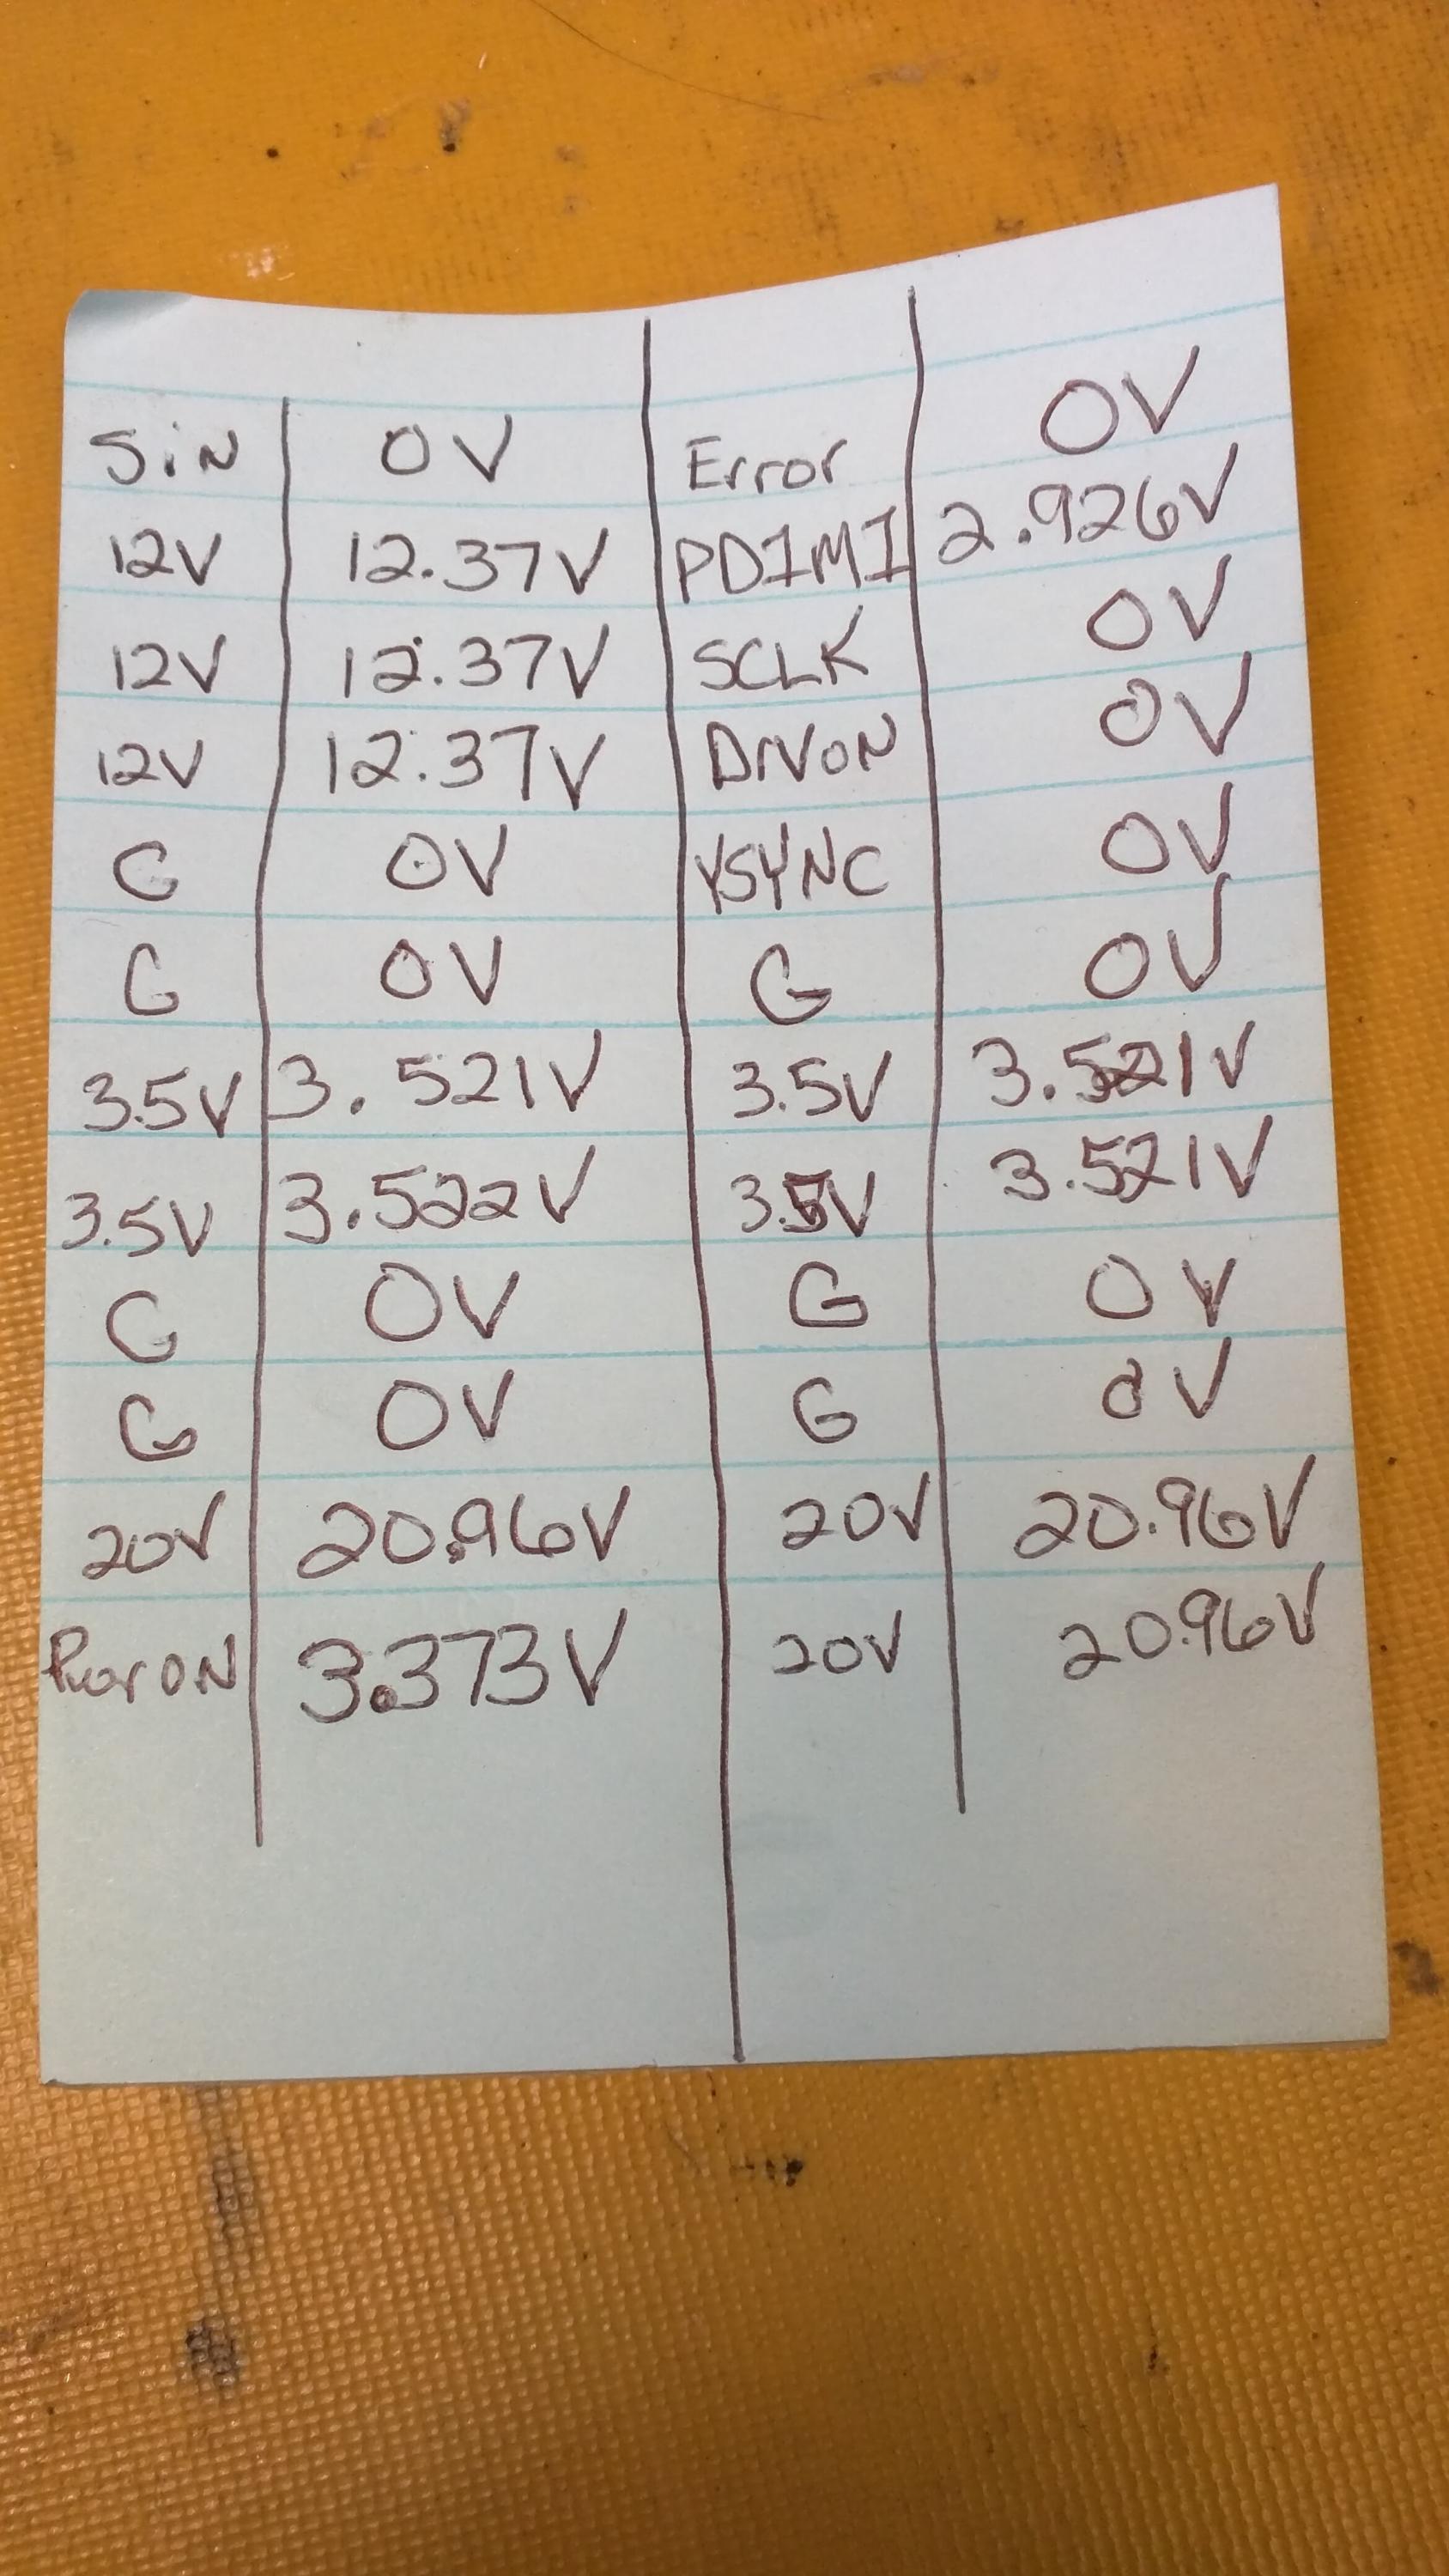 SiN 0V Error 0V
12V 12.37V PDIMI 2.926V
12V 12.37V SCLK 0V
12V 12.37V DrVON 0V
G 0V VSYNC 0V
G 0V G 0V
3.5V 3.521V 3.5V 3.521V
3.5V 3.522V 3.5V 3.521V
G 0V G 0V
G 0V G 0V
20V 20.96V 20V 20.96V
PwrON 3.373V 20V 20.96V